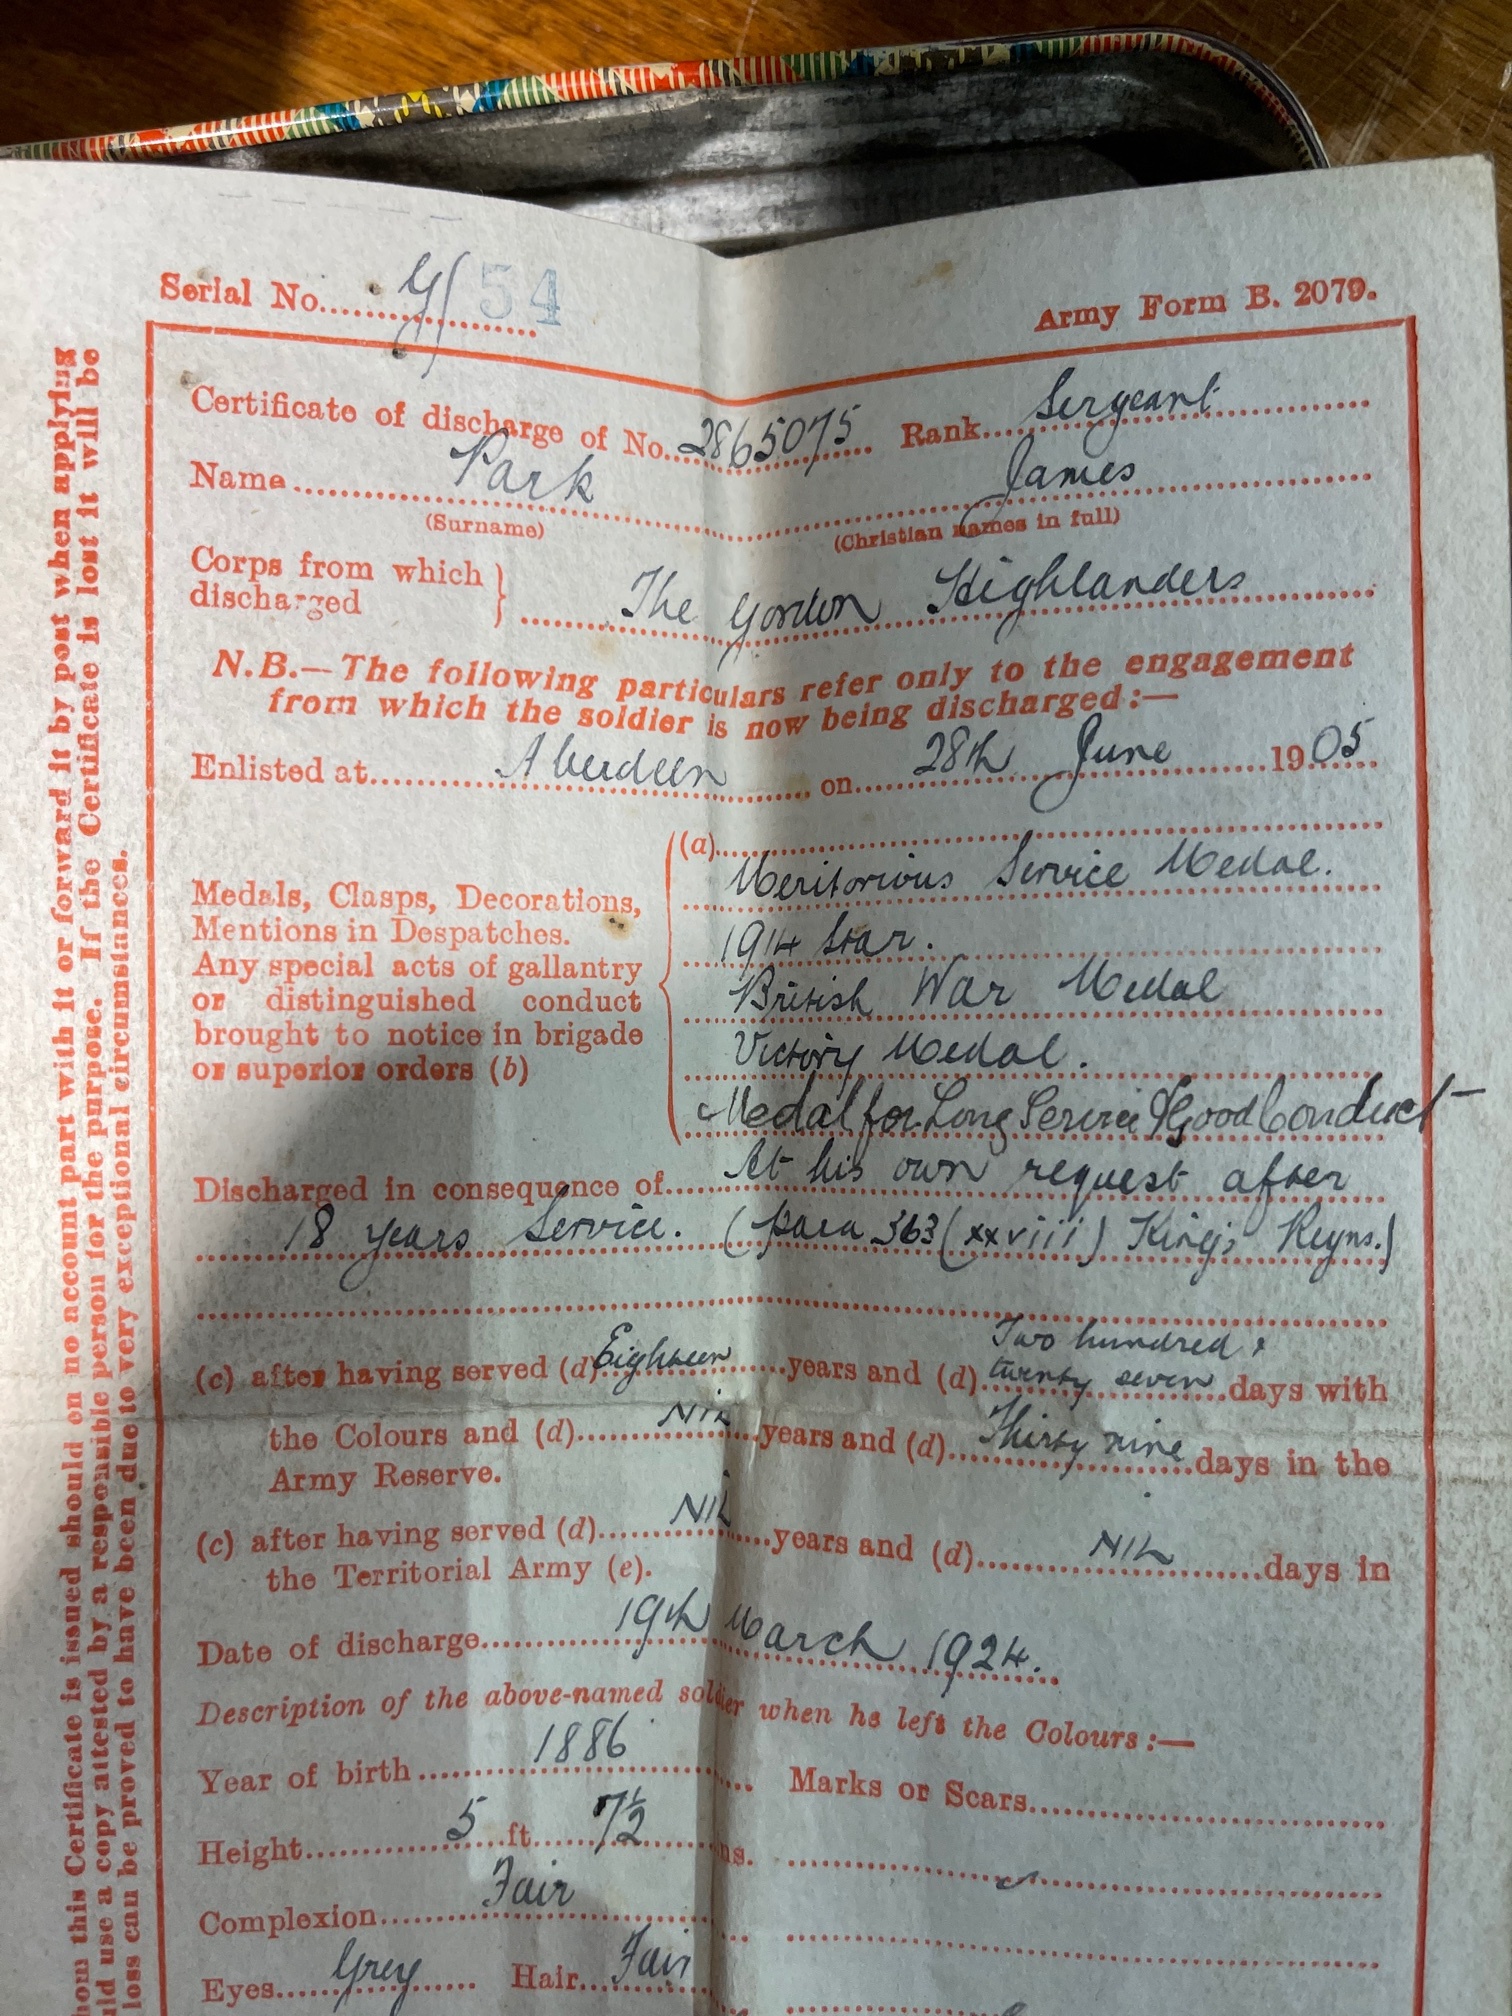 Serial No. Y/ 54
Army Form B. 2079.
Certificate of discharge of No. 2865075 Rank Sergeant
Name Park James
(Surname) (Christian names in full)
Corps from which
discharged } The Gordon Highlanders
N.B.—The following particulars refer only to the engagement
from which the soldier is now being discharged:—
Enlisted at Aberdeen on 28th June 1905
(a)
Meritorious Service Medal.
Medals, Clasps, Decorations,
Mentions in Despatches. 1914 Star.
Any special acts of gallantry
or distinguished conduct British War Medal
brought to notice in brigade Victory Medal.
or superior orders (b)
Medal for Long Service & Good Conduct
Discharged in consequence of At his own request after
18 years Service. (para 363 (xxviii) King's Regns.)
(c) after having served (d) Eighteen years and (d) Two hundred & twenty seven days with
the Colours and (d) Nil years and (d) Thirty nine days in the
Army Reserve.
(c) after having served (d) Nil years and (d) Nil days in
the Territorial Army (e).
Date of discharge 19th March 1924.
Description of the above-named soldier when he left the Colours:—
Year of birth 1886 Marks or Scars
Height 5 ft. 7½ ins.
Complexion Fair
Eyes Grey Hair Fair
whom this Certificate is issued should on no account part with it or forward it by post when applying
should use a copy attested by a responsible person for the purpose. If the Certificate is lost it will be
loss can be proved to have been due to very exceptional circumstances.